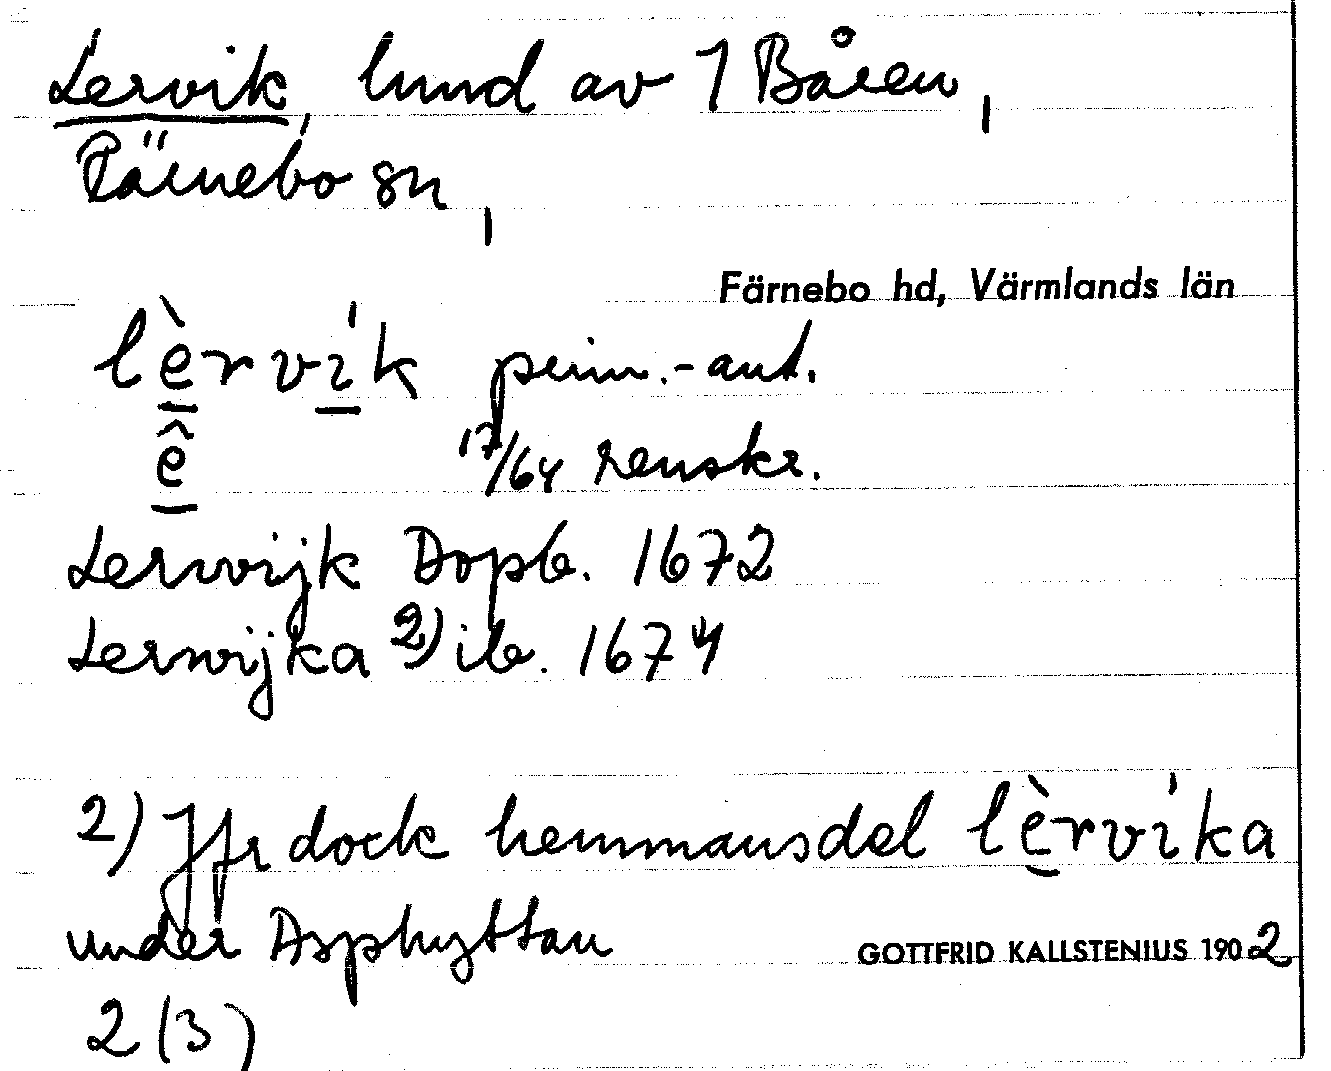 Lervik, hmd av 1 Båren,
Färnebo sn,
Färnebo hd, Värmlands län
lèrvík penn.-ant.
ê 17/64 renskr.
Lervvijk Dopb. 1672
Lerwijka 2) ib. 1674
2) Jfr dock hemmansdel lèrvíka
under Asphyttan
GOTTFRID KALLSTENIUS 1902
2(3)